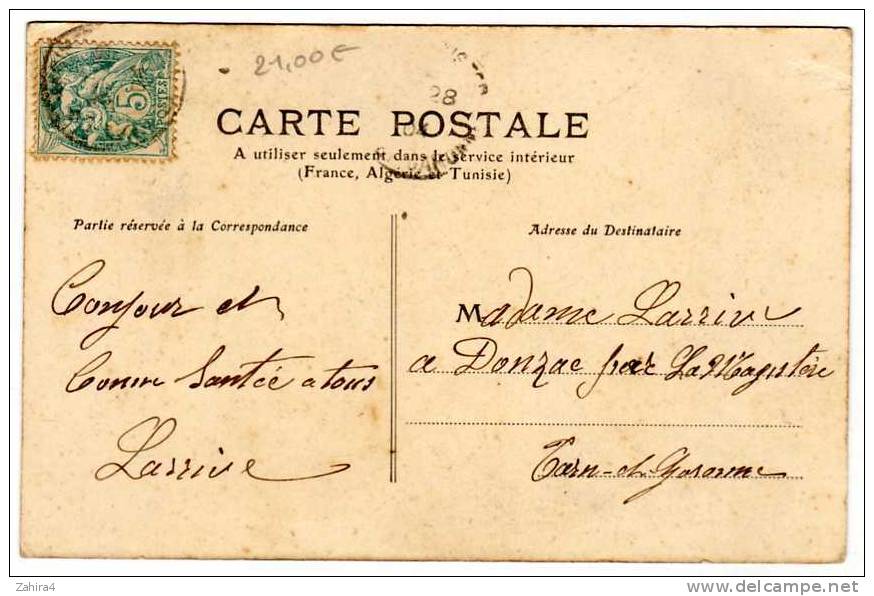 21,00€
5
POSTES
28
CARTE POSTALE
A utiliser seulement dans le service intérieur
(France, Algérie et Tunisie)
Partie réservée à la Correspondance
Adresse du Destinataire
Bonjour et
Bonne Santée a tous
Larrive
Madame Larrive
a Donzac par La Magistère
Tarn-et-Garonne
Zahira4
delcampe.net